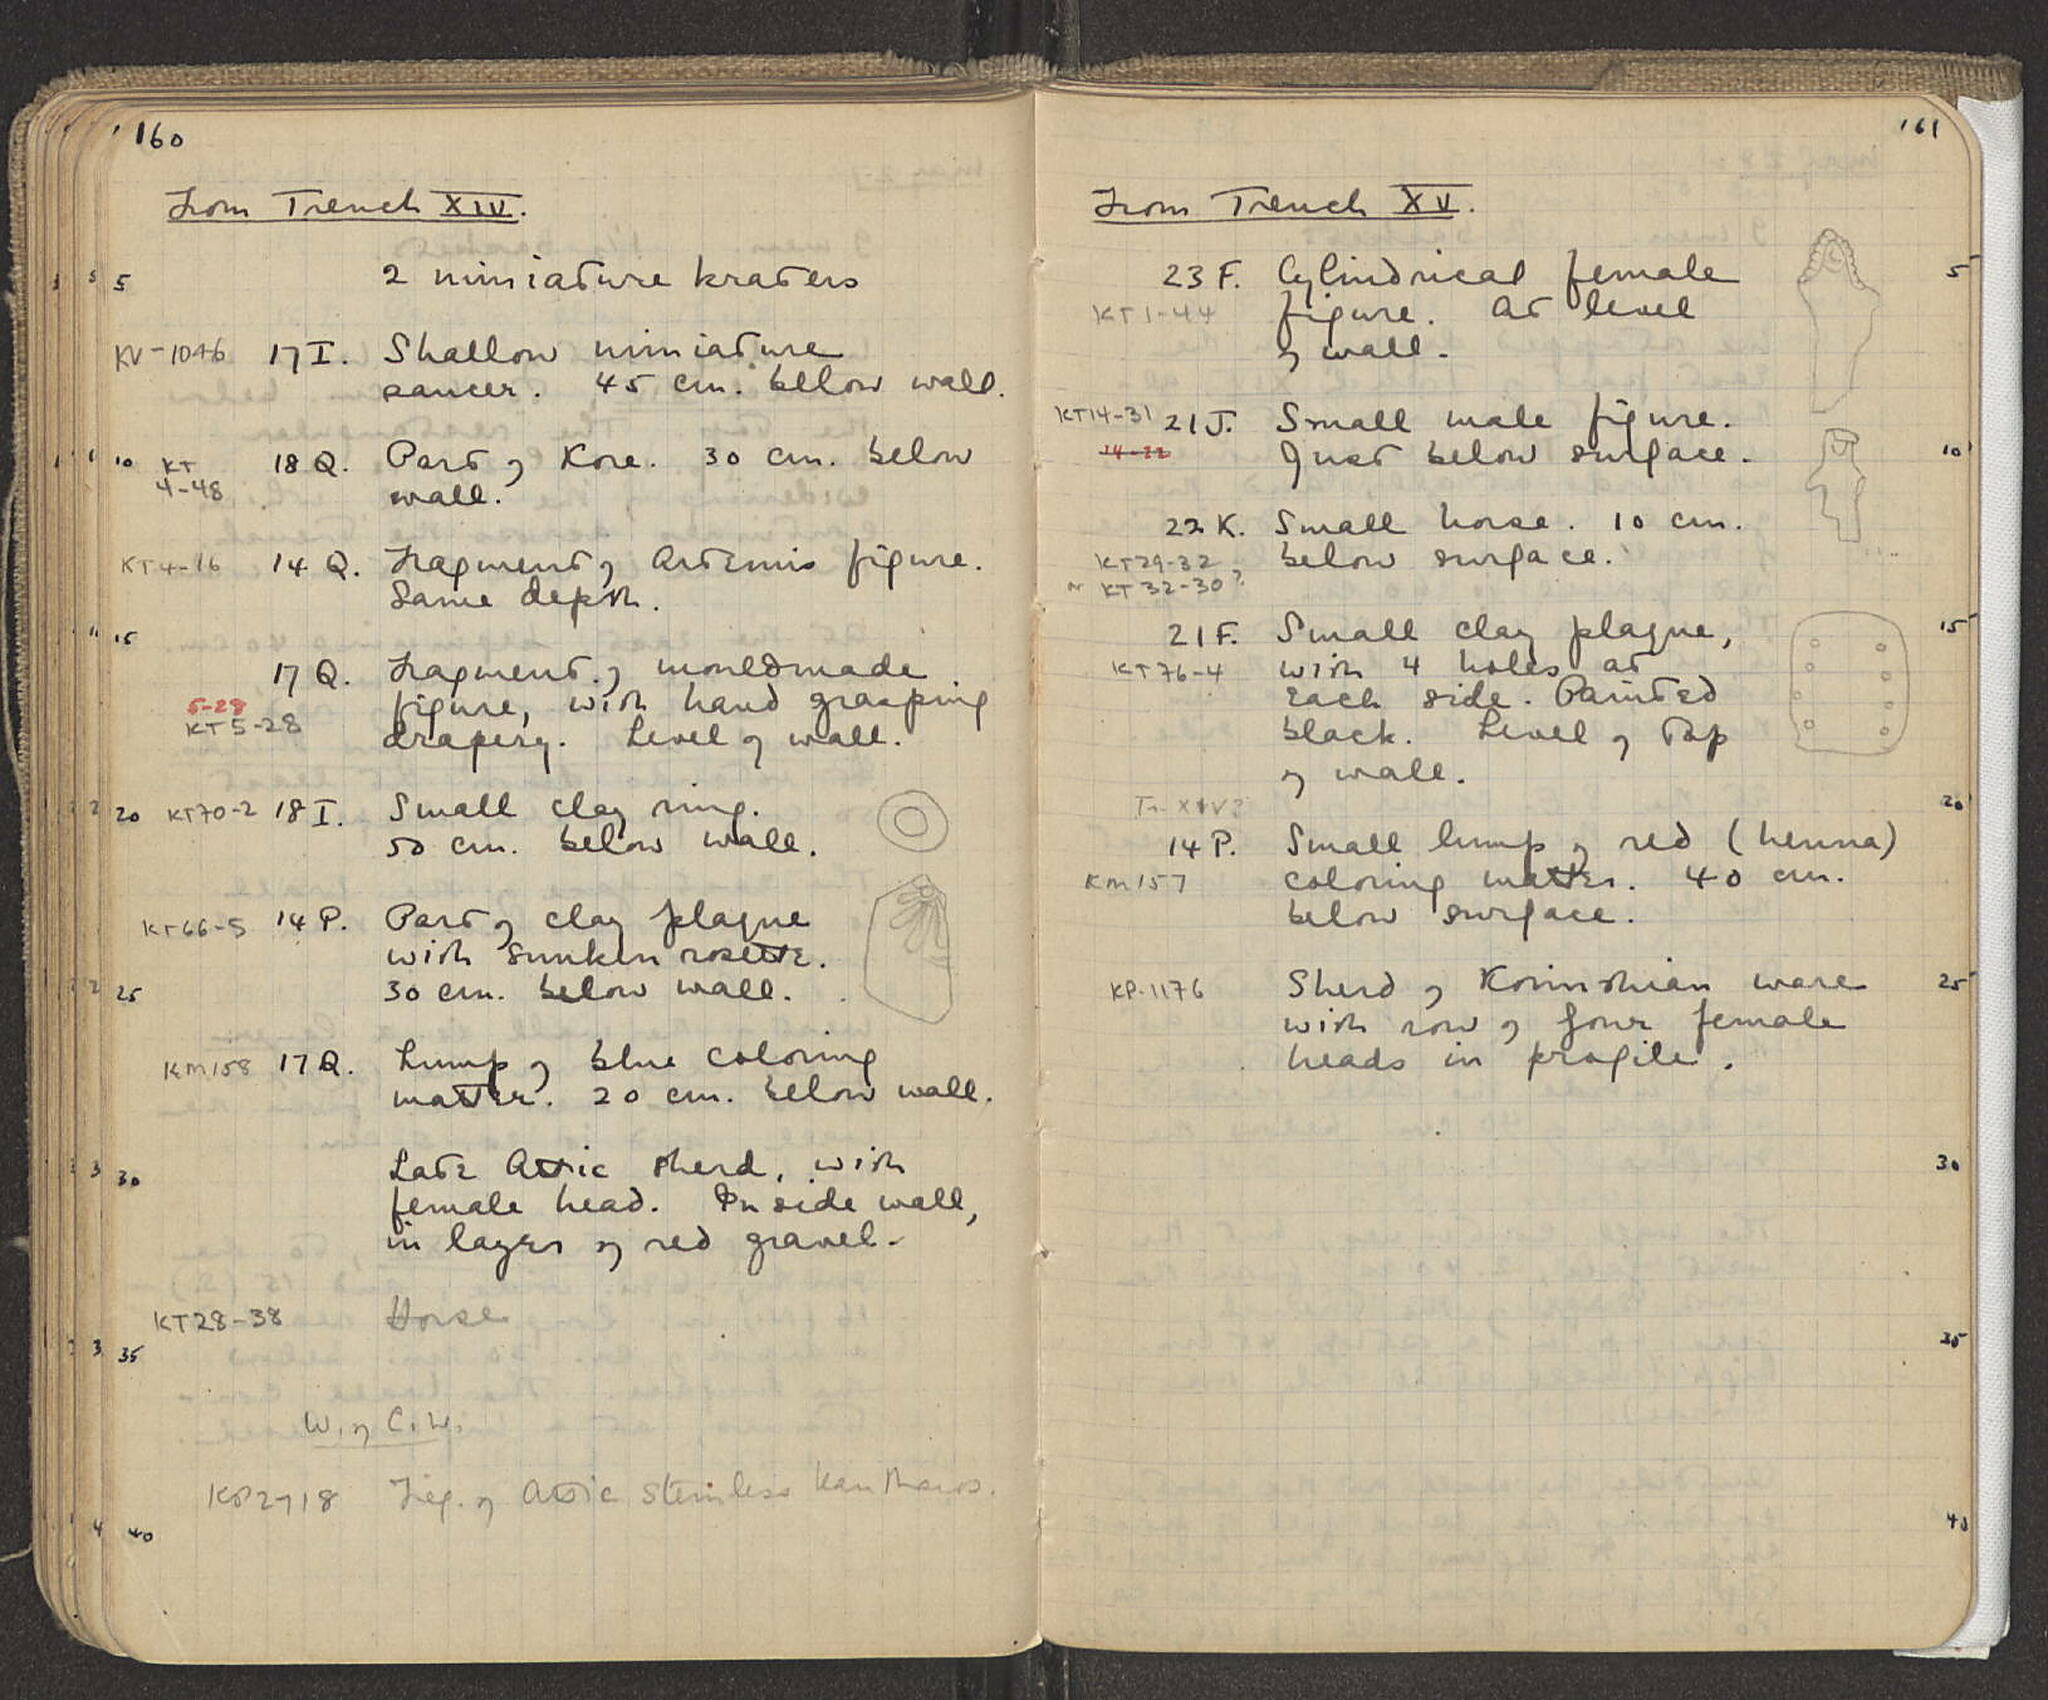 160
From Trench XIV.
5 2 miniature kraters
KV-1046 17 I. Shallow miniature
saucer. 45 cm. below wall.
10 KT 18 Q. Part of Kore. 30 cm. below
4-48 wall.
KT4-16 14 Q. Fragment of Artemis figure.
Same depth.
15
17 Q. Fragment of mouldmade
5-28 figure, with hand grasping
KT5-28 drapery. Level of wall.
20 KT70-2 18 I. Small clay ring.
50 cm. below wall.
KT66-5 14 P. Part of clay plaque
with sunken rosette.
25 30 cm. below wall.
KM158 17 Q. Lump of blue coloring
matter. 20 cm. below wall.
30 Late Attic sherd, with
female head. Inside wall,
in layer of red gravel.
KT28-38 Horse
35
W. of C.W.
KP2718 Frg. of Attic Stemless Kantharos.
40
161
From Trench XV.
23 F. Cylindrical female 5
KT1-44 figure. At level
of wall.
KT14-31 21 J. Small male figure.
14-22 Just below surface. 10
22 K. Small horse. 10 cm.
KT29-32 below surface.
or KT32-30?
21 F. Small clay plaque, 15
KT76-4 with 4 holes at
each side. Painted
black. Level of top
of wall.
Tr. XIV? 20
14 P. Small lump of red (henna)
KM157 coloring matter. 40 cm.
below surface.
KP-1176 Sherd of Korinthian ware 25
with row of four female
heads in profile.
30
35
40